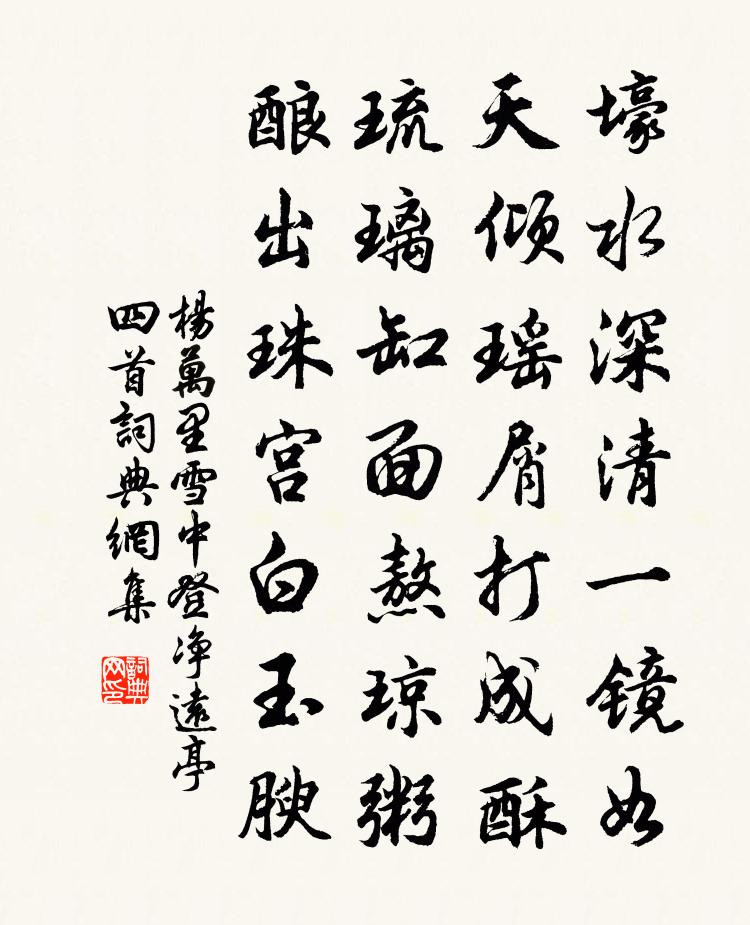 壕水深清一镜如
天倾瑶屑打成酥
琉璃缸面熬琼粥
酿出珠宫白玉腴
楊萬里雪中登净遠亭
四首詞典網集
詞典
网印